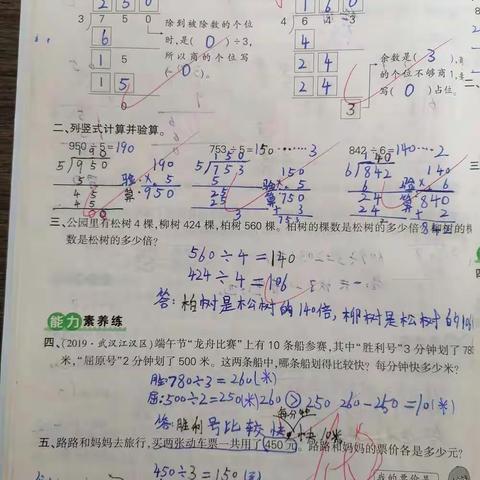 2 5 0
1 6 0
3 7 5 0
除到被除数的个位
6
时,是( 0 )÷3,
1 5
所以商的个位写
1 5
( 0 )。
0
4 6 4 3
4
2 4
2 4
3
余数是( 3 ),
的个位不够商1,
写( 0 )占位。
二、列竖式计算并验算。
950÷5=190
753÷5=150……3
842÷6=140……2
三、公园里有松树4棵,柳树424棵,柏树560棵。柏树的棵数是松树的多少倍?
数是松树的多少倍?
560÷4=140
424÷4=106
答:柏树是松树的140倍,柳树是松树的10
能力素养练
四、(2019·武汉江汉区)端午节“龙舟比赛”上有10条船参赛,其中“胜利号”3分钟划了780
米,“屈原号”2分钟划了500米。这两条船中,哪条船划得比较快?每分钟快多少米?
胜:780÷3=260(米)
屈:500÷2=250(米) 260>250 260-250=10(米)
答:胜利号比较快 每分钟快10米
五、路路和妈妈去旅行,买两张动车票一共用了450元。路路和妈妈的票价各是多少元?
450÷3=150(元)
我的票价是